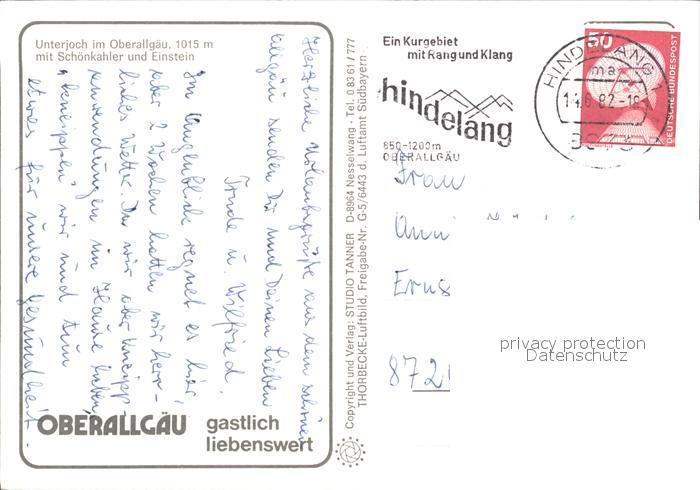 Unterjoch im Oberallgäu, 1015 m
mit Schönkahler und Einstein
Herzliche Urlaubsgrüße aus dem schönen
Allgäu senden Dir und Deinen Lieben
Trude u. Wilfried.
Im Augenblick regnet es hier,
aber 2 Wochen hatten wir herr-
liches Wetter. Da wir aber Kneipp-
anwendungen im Hause haben,
"kneippen" wir und tun
etwas für unsere Gesundheit.
OBERALLGÄU gastlich
liebenswert
Copyright und Verlag: STUDIO TANNER D-8964 Nesselwang · Tel. 0 83 61 / 777
THORBECKE-Luftbild, Freigabe-Nr. G-5/6443 d. Luftamt Südbayern
Ein Kurgebiet
mit Rang und Klang
hindelang
850-1200m
OBERALLGÄU
HINDELANG 1
ma
14.6.82-18
50
DEUTSCHE BUNDESPOST
Frau
Anni
Erns
8721
privacy protection
Datenschutz